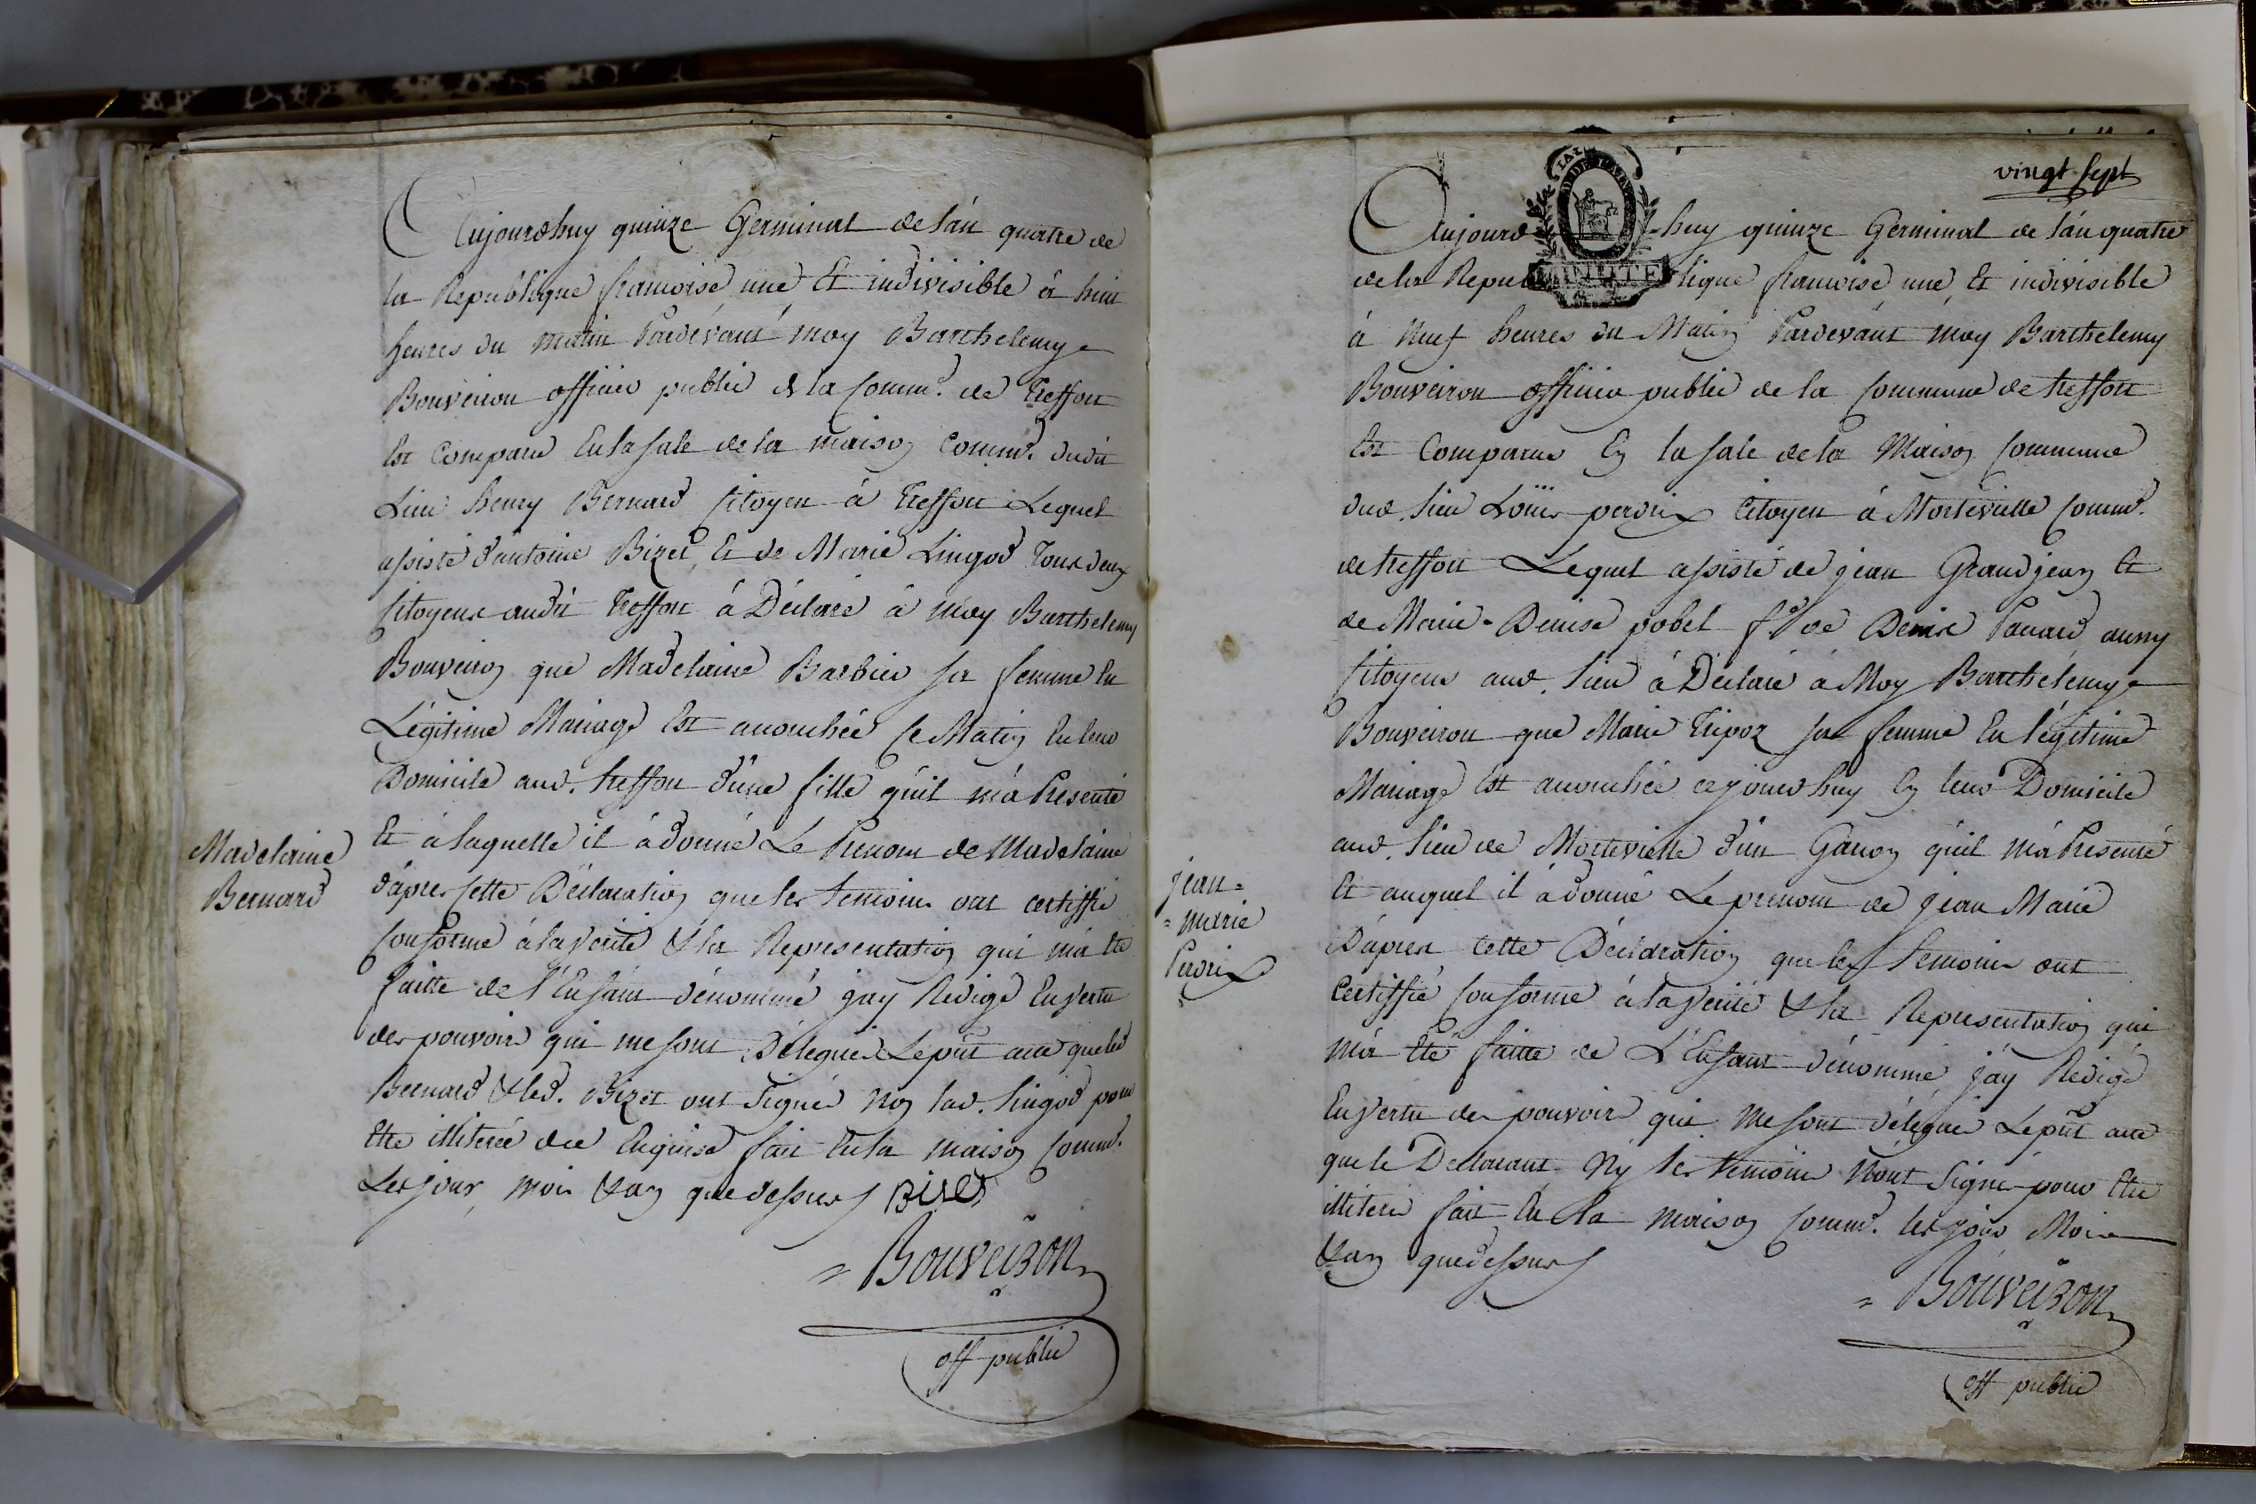 Aujourdhuy quinze Germinal de l'an quatre de
la Republique francoise une Et indivisible à huit
heures du matin Pardévant moy Barthelemy
Bouveiron officier public de la Comm.e de Treffort
Est Comparu En la sale de la maison Comm.e dudit
Lieu henry Bernard Citoyen à Treffort Lequel
assisté d'antoine Bizet, Et de Marie Lingod Tous deux
Citoyens audit Treffort à Déclaré à moy Barthelemy
Bouveiron que Madelaine Barbier sa femme En
Légitime Mariage Est accouchée Ce Matin En leur
Domicile aud. treffort d'une fille qu'il m'à Presenté
Et à laquelle il à donné Le Prenom de Madelaine
d'apres Cette Déclaration que les temoins ont certiffié
Conforme à la verité & la Representation qui m'à Eté
faitte de l'Enfant dénommé j'ay Redigé En vertu
des pouvoirs qui me sont Délegués Le p'nt acte que led
Bernard & led. Bizet ont Signé Non lad. lingod pour
Etre illiterée de ce Enquise fait En la maison Comm.e
Les jour, mois & an que dessus Bizet
= Bouveiron
off public
Madelaine
Bernard
vingt sept
Aujourd -huy quinze Germinal de l'an quatre
de la Repub lique francoise une, Et indivisible
à Neuf heures du Matin Pardevant moy Barthelemy
Bouveiron officier public de la Commune de treffort
Est Comparus En la sale de la Maison Commune
dud. lieu Loüis perdrix Citoyen à Montevielle Comm.e
de treffort Lequel assisté de jean Grandjean Et
de Marie-Denise pobel f.e de Denis Panard aussy
Citoyens aud. lieu à Déclaré à Moy Barthelemy
Bouveiron que Marie Tripoz sa femme En légitime
Mariage Est accouchée cejourdhuy En leur Domicile
aud. lieu de Montevielle d'un Garçon qu'il m'à Presenté
Et auquel il à donné Le prenom de jean Marie
D'apres Cette Déclaration que les temoins ont
Certiffié Conforme à la verité & la Representation qui
m'à Eté faitte de L'Enfant dénommé j'ay Redigé
En vertu des pouvoirs qui me sont délégués Le p'nt acte
que le Declarant Ny les temoins N'ont Signé pour Etre
illiteré fait En la maison Comm.e les jour Mois
& an que dessus
= Bouveiron
off public
jean =
= marie
Perdrix